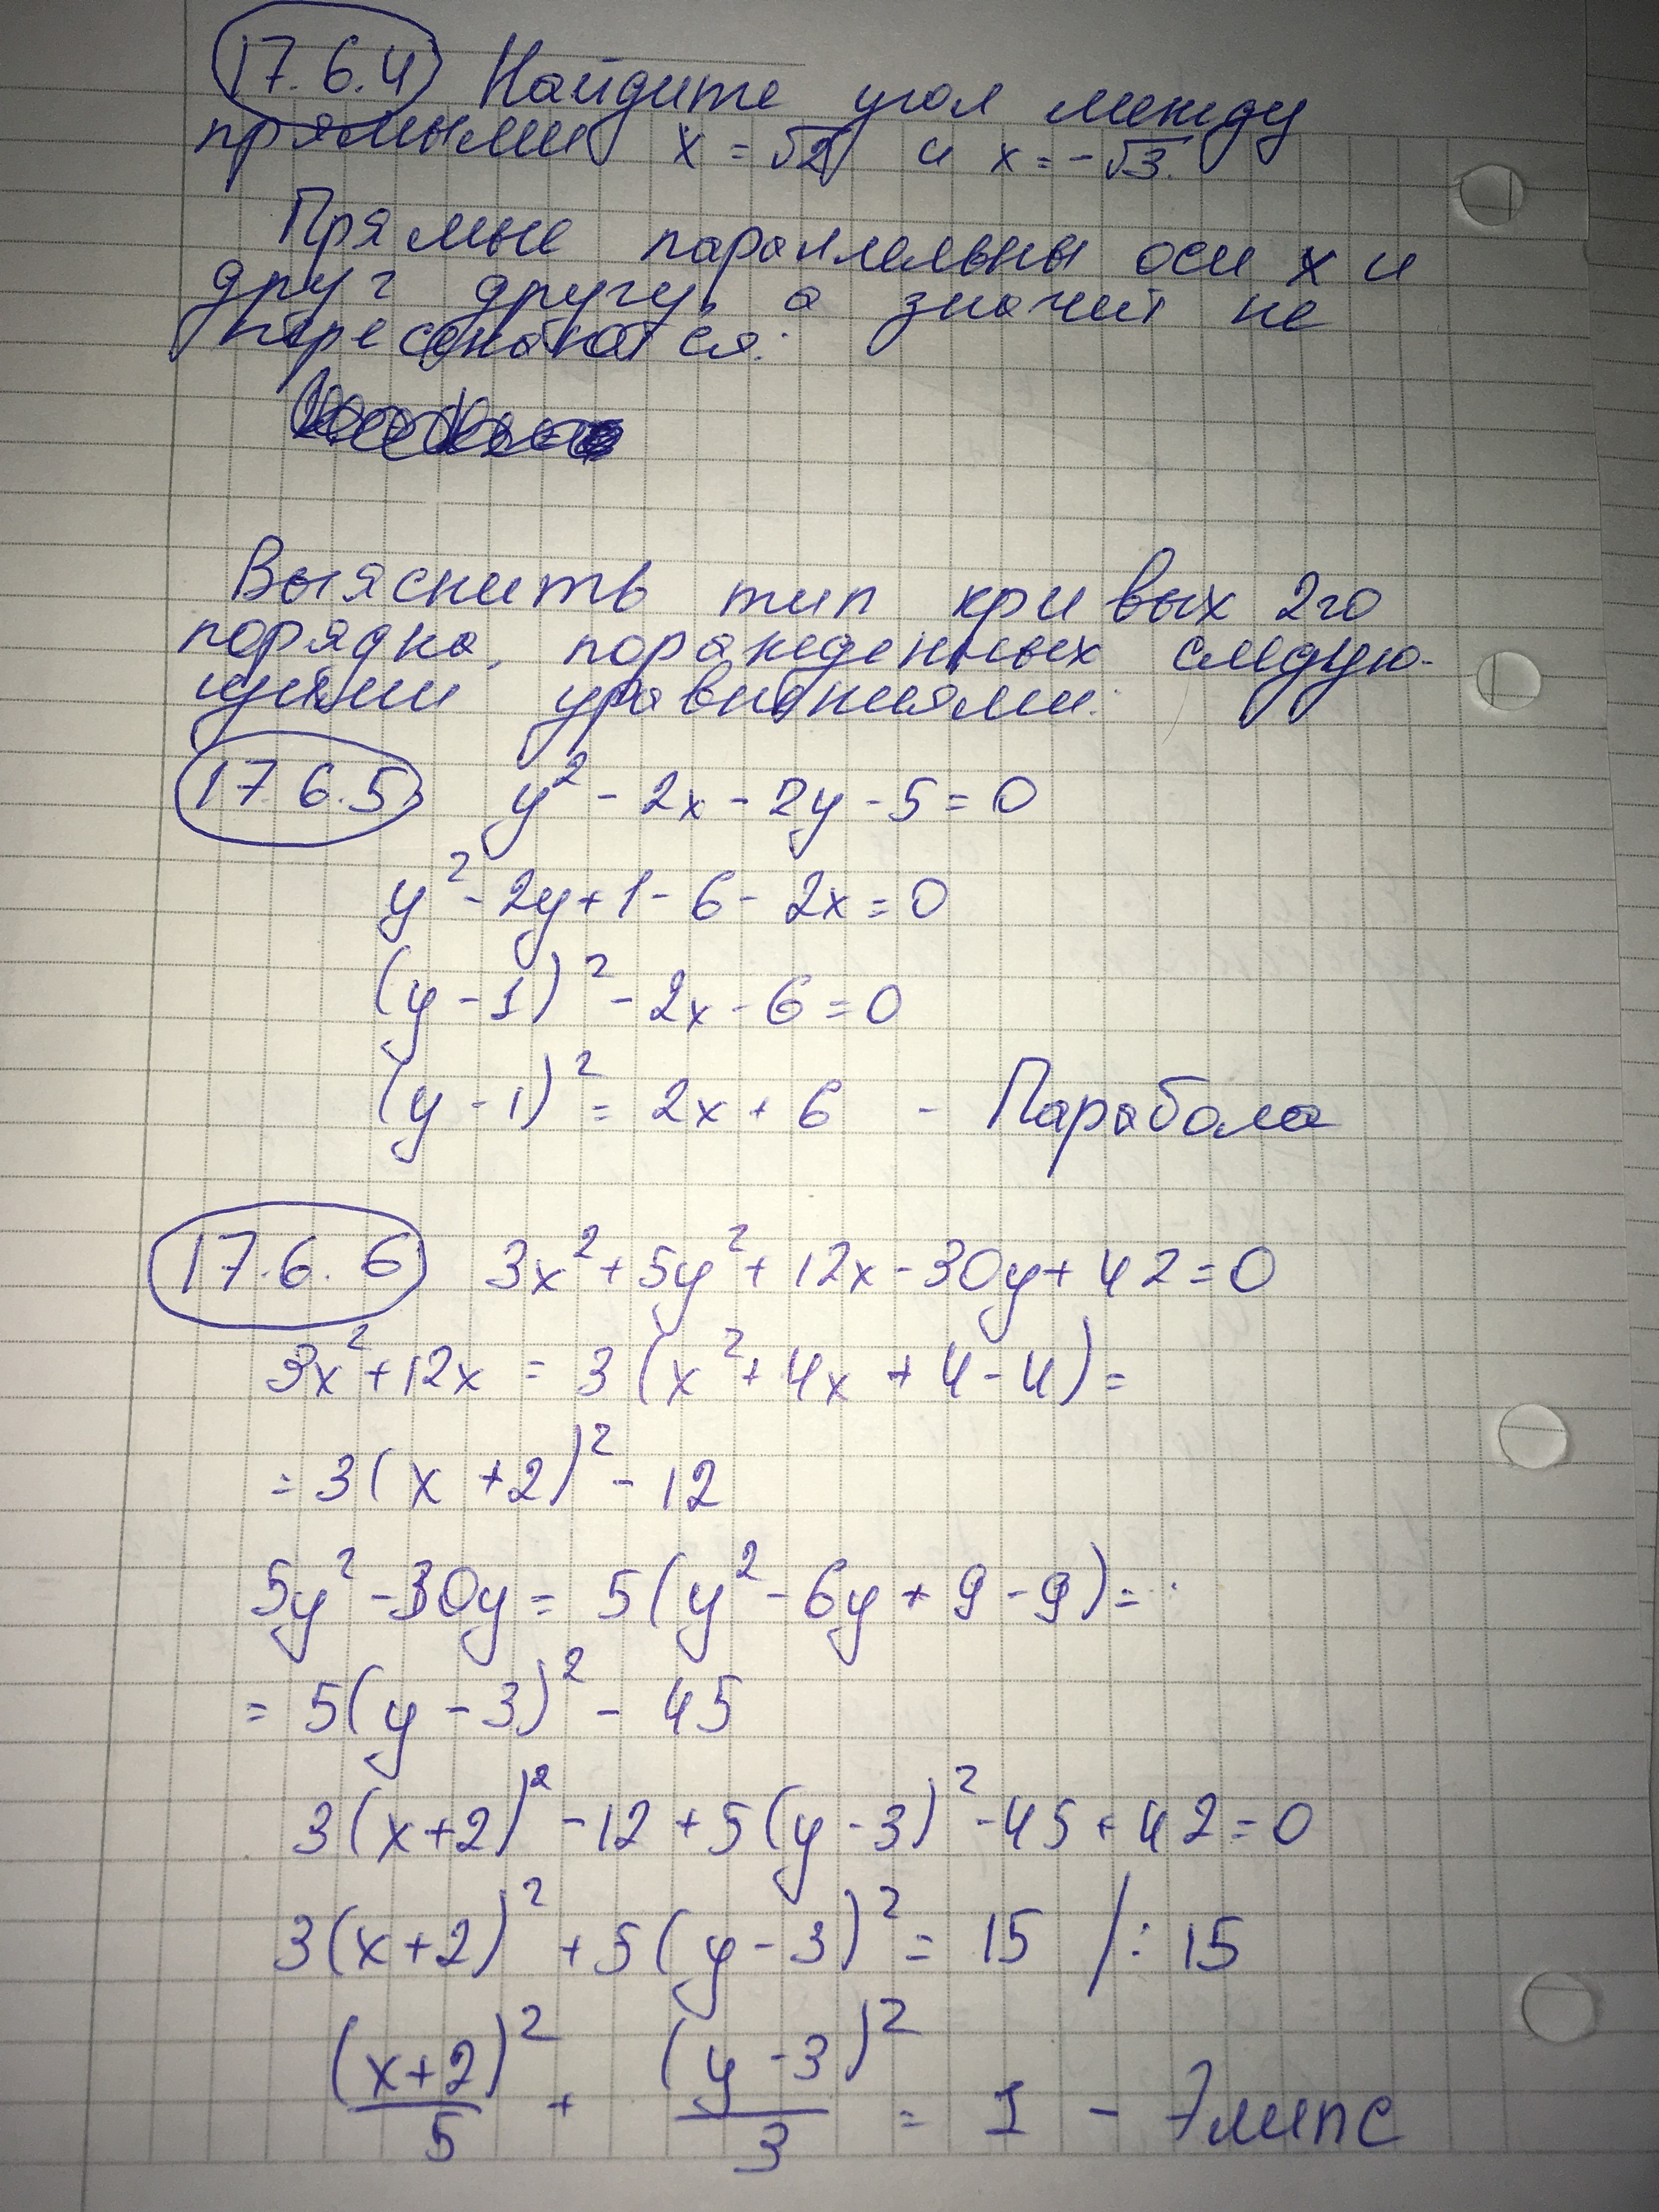 17.6.4 Найдите угол между
прямыми x = √2 и x = -√3.
Прямые параллельны оси x и
друг другу, а значит не
пересекаются.
Выяснить тип кривых 2го
порядка, порожденных следую-
щими уравнениями:
17.6.5 y² - 2x - 2y - 5 = 0
y² - 2y + 1 - 6 - 2x = 0
(y - 1)² - 2x - 6 = 0
(y - 1)² = 2x + 6 - Парабола
17.6.6 3x² + 5y² + 12x - 30y + 42 = 0
3x² + 12x = 3(x² + 4x + 4 - 4) =
= 3(x + 2)² - 12
5y² - 30y = 5(y² - 6y + 9 - 9) =
= 5(y - 3)² - 45
3(x+2)² - 12 + 5(y - 3)² - 45 + 42 = 0
3(x+2)² + 5(y - 3)² = 15 / : 15
(x+2)²/5 + (y - 3)²/3 = 1 - Элипс